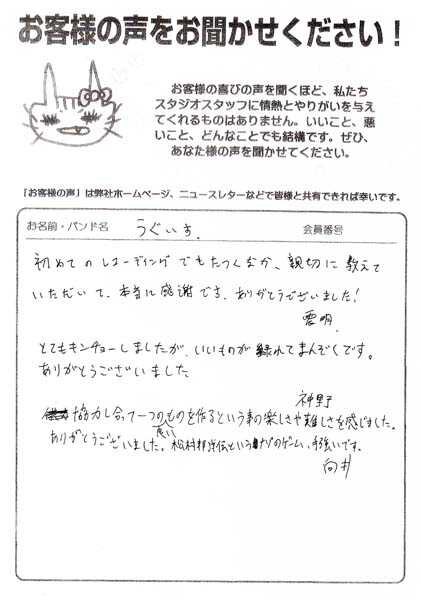 お客様の声をお聞かせください！
お客様の喜びの声を聞くほど、私たち
スタジオスタッフに情熱とやりがいを与え
てくれるものはありません。いいこと、悪
いこと、どんなことでも結構です。ぜひ、
あなた様の声を聞かせてください。
「お客様の声」は弊社ホームページ、ニュースレターなどで皆様と共有できれば幸いです。
お名前・バンド名 うぐいす. 会員番号
初めてのレコーディングでもたつくなか、親切に教えて
いただいて、本当に感謝です。ありがとうございました！
とてもキンチョーしましたが、いいものが録れてまんぞくです。
ありがとうございました
神野
協力し合って一つのものを作るという事の楽しさや難しさを感じました。
ありがとうございました。松村邦洋伝という のゲーム、です。
向井